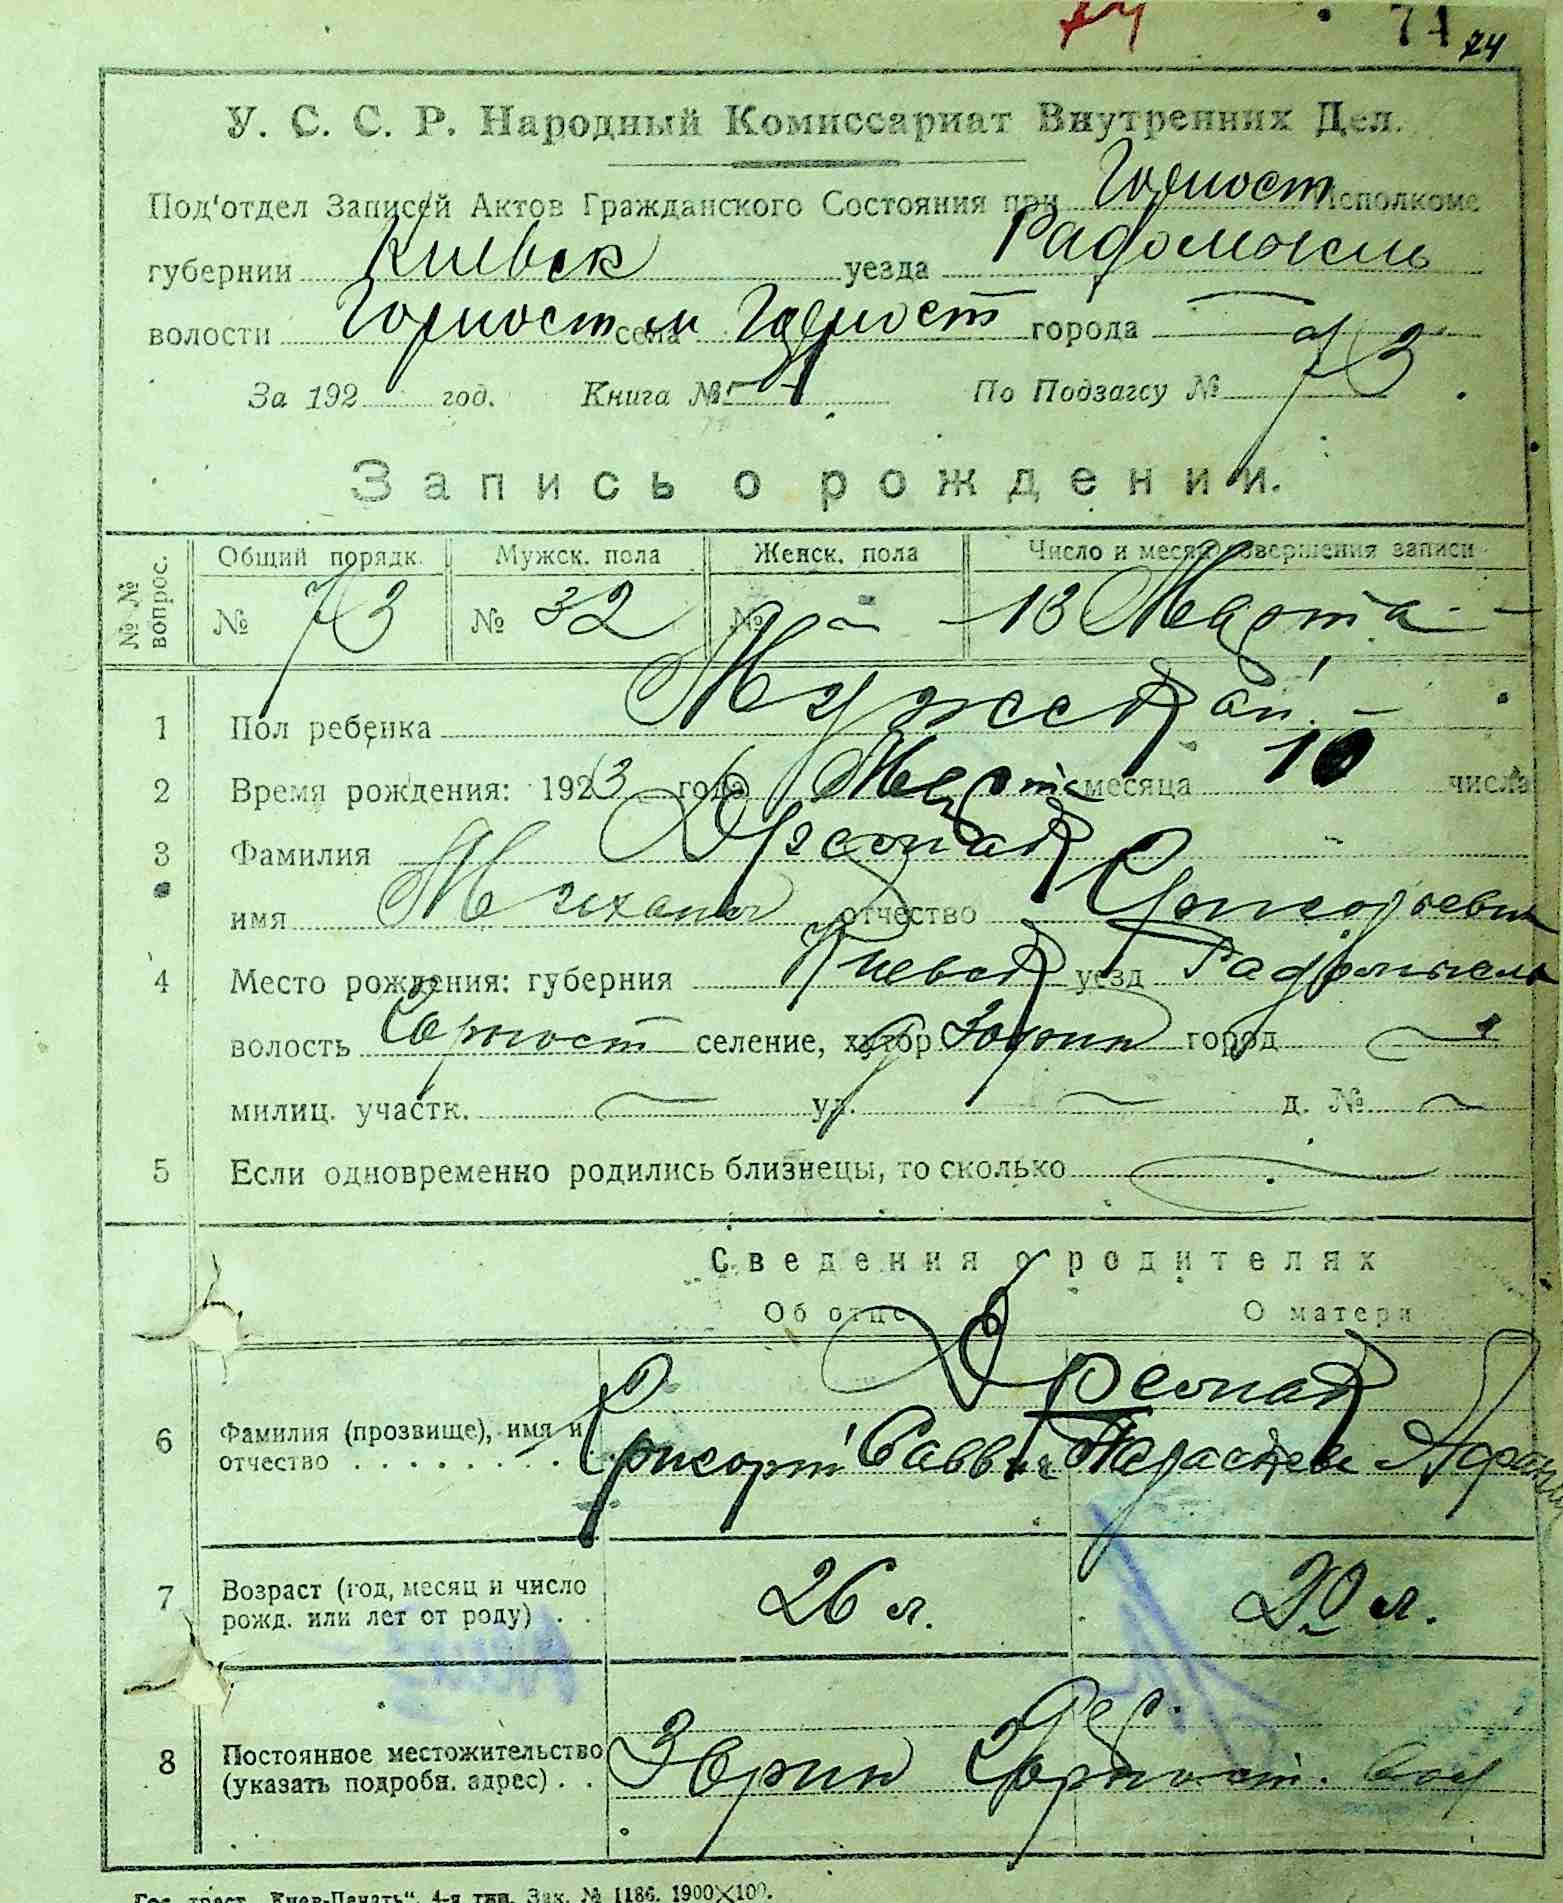 74 74 74
У. С. С. Р. Народный Комиссариат Внутренних Дел.
Под'отдел Записей Актов Гражданского Состояния при Горност Исполкоме
губернии Киевск уезда Радомысль
волости Горност села Горност города —
За 192 год. Книга № 1 По Подзагсу № 73.
Запись о рождении.
№ № вопрос. Общий порядк. Мужск. пола Женск. пола Число и месяц совершения записи
№ 73 № 32 № — 13 Марта
1 Пол ребенка Мужской
2 Время рождения: 1923 года Март месяца 10 числа
3 Фамилия
имя Михаил отчество Григорьевич
4 Место рождения: губерния Киевск уезд Радомысль
волость Горност селение, хутор Зорин город —
милиц. участк. — ул. — д. № —
5 Если одновременно родились близнецы, то сколько —
Сведения о родителях
Об отце О матери
6 Фамилия (прозвище), имя и
отчество Григорий Савв Параскева
7 Возраст (год, месяц и число
рожд. или лет от роду) 26 л. 20 л.
8 Постоянное местожительство
(указать подробн. адрес) Зорин Горност. вол
Гос. трест „Киев-Печать“, 4-я тип. Зак. № 1186. 1900×100.